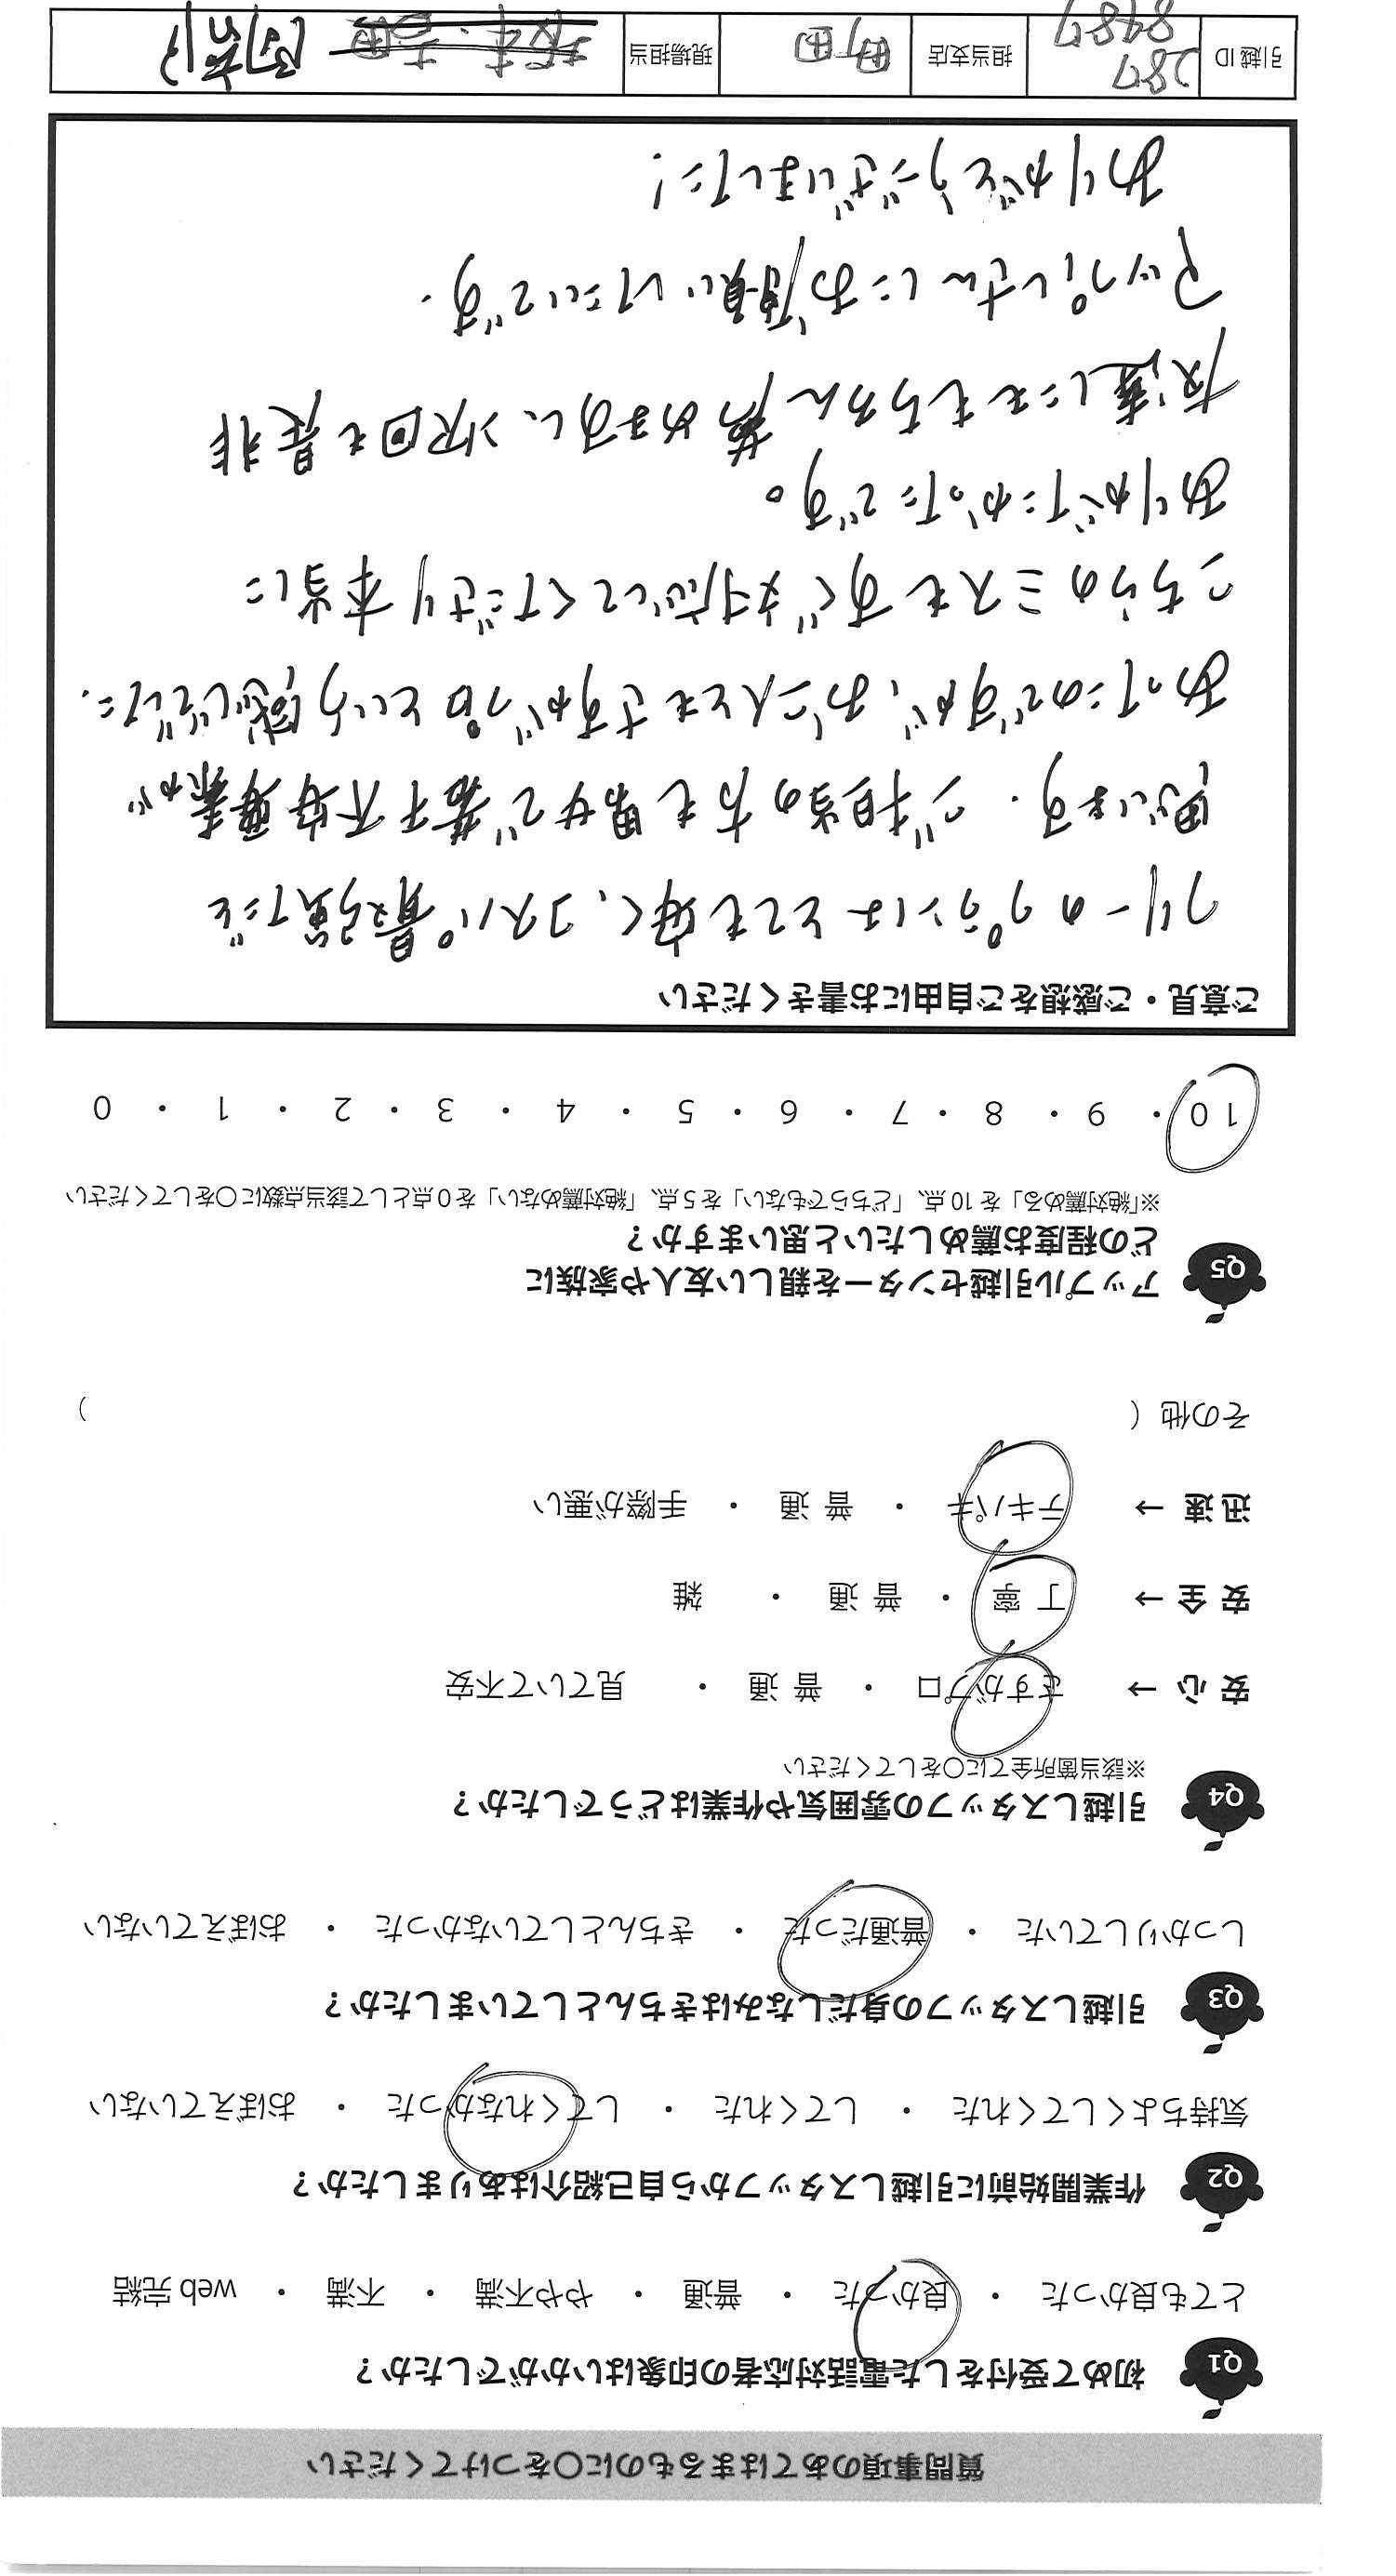 質問事項のあてはまるものに〇をつけてください
Q1 初めて受付をした電話対応者の印象はいかがでしたか？
とても良かった ・ 良かった ・ 普通 ・ やや不満 ・ 不満 ・ web 完結
Q2 作業開始前に引越しスタッフから自己紹介はありましたか？
気持ちよくしてくれた ・ してくれた ・ してくれなかった ・ おぼえていない
Q3 引越しスタッフの身だしなみはきちんとしていましたか？
しっかりしていた ・ 普通だった ・ きちんとしていなかった ・ おぼえていない
Q4 引越しスタッフの雰囲気や作業はどうでしたか？
※該当箇所全てに〇をしてください
安心 → さすがプロ ・ 普通 ・ 見ていて不安
安全 → 丁寧 ・ 普通 ・ 雑
迅速 → テキパキ ・ 普通 ・ 手際が悪い
その他（ ）
Q5 アップル引越センターを親しい友人や家族に
どの程度お薦めしたいと思いますか？
※「絶対薦める」を10点、「どちらでもない」を5点、「絶対薦めない」を0点として該当点数に〇をしてください
10 ・ 9 ・ 8 ・ 7 ・ 6 ・ 5 ・ 4 ・ 3 ・ 2 ・ 1 ・ 0
ご意見・ご感想をご自由にお書きください
フリーのプランはとても安く、コスパ最強だと
思います. ご担当の方も男女で若干不安要素が
あったのですが、お二人ともさすがプロという感じでした.
こちらのミスもすぐ対応してくださり本当に
ありがたかったです。
友達にももちろん薦めますし、次回も是非
アップルさんにお願いしたいです.
ありがとうございました！
引越ID 287 8487 担当支店 町田 現場担当